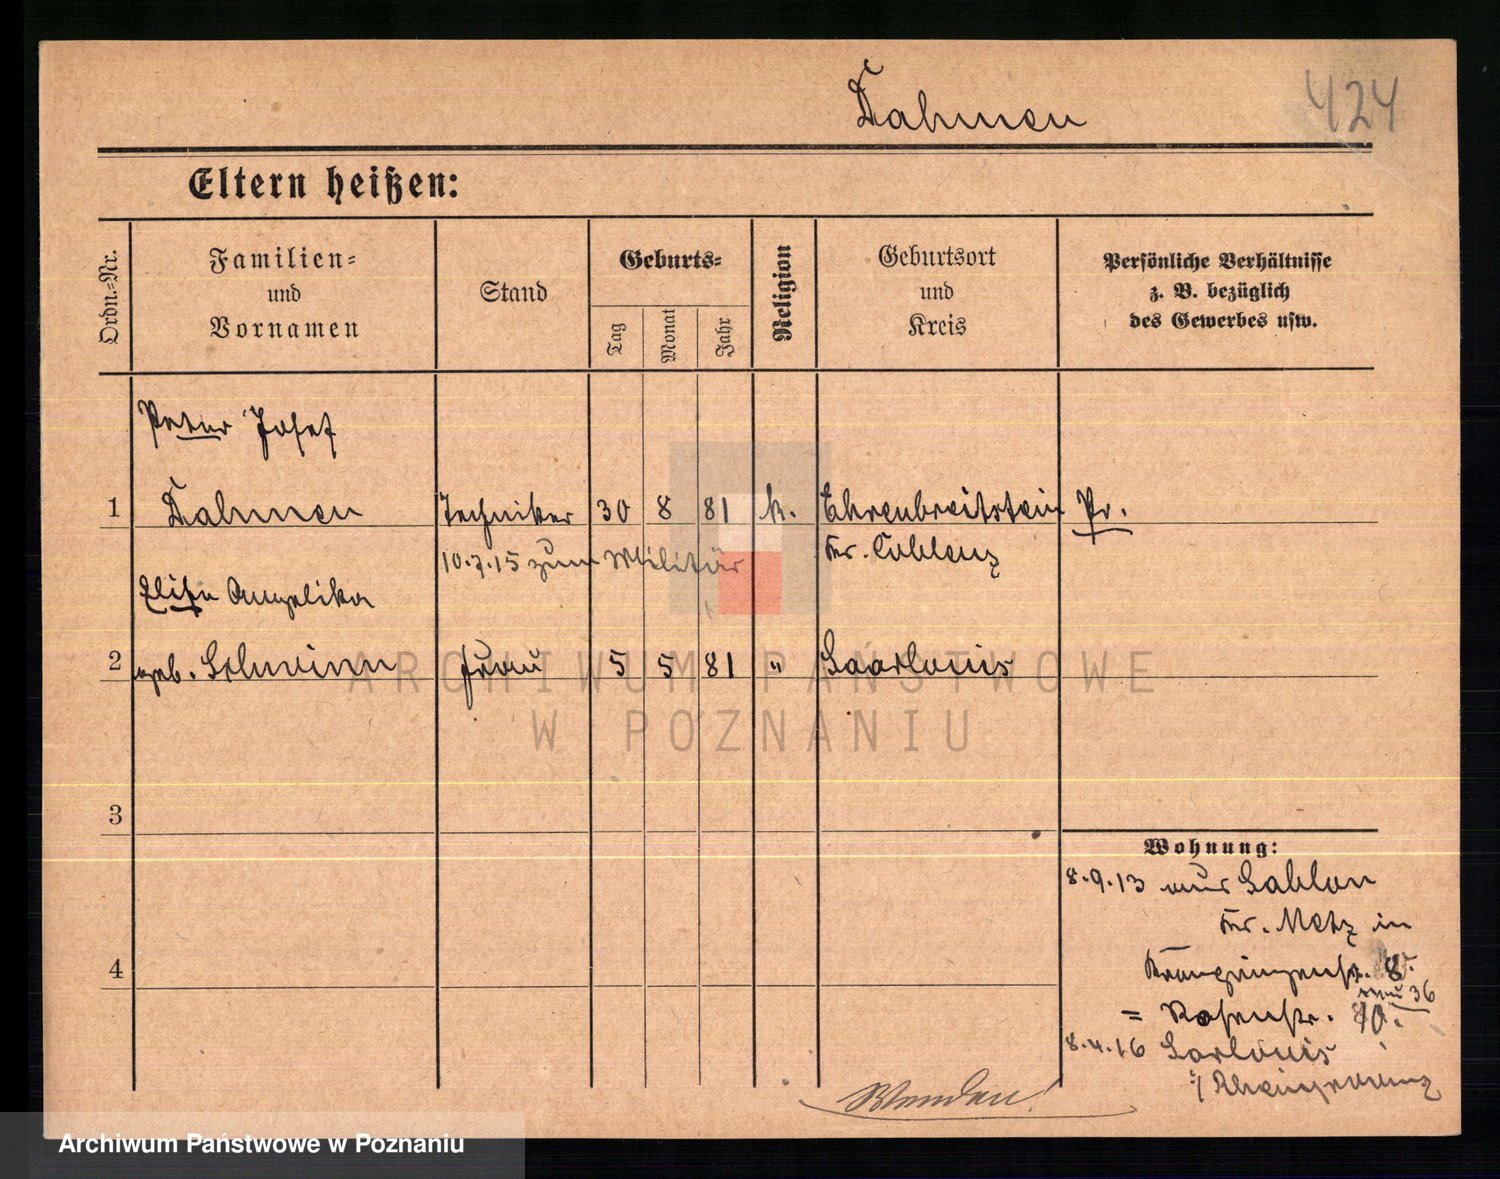 Dahmen
424
Eltern heißen:
Ordn.-Nr.
Familien-
und
Vornamen
Stand
Geburts-
Tag
Monat
Jahr
Religion
Geburtsort
und
Kreis
Persönliche Verhältnisse
z. B. bezüglich
des Gewerbes usw.
Peter Josef
1 Dahmen Techniker 30 8 81 k. Ehrenbreitstein Pr.
10.7.15 zum Militär Kr. Coblenz
Elise Angelika
2 geb. Schwinn Frau 5 5 81 " Saarlouis
ARCHIWUM PAŃSTWOWE
W POZNANIU
3
Wohnung:
8.9.13 aus Sablon
Kr. Metz in
4
Kronprinzenstr. 8.
neu 36
= Rosenstr. 10.
8.4.16 Sarlouis
/ Rheinprovinz
Archiwum Państwowe w Poznaniu